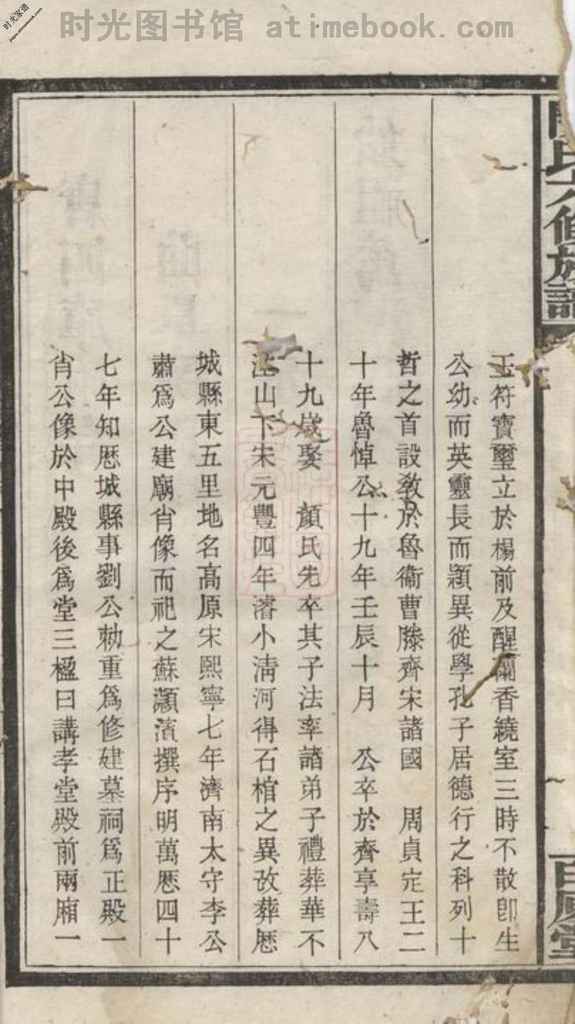 时光图书馆 atimebook.com
时光家谱
氏六修族譜
堂
玉符寶璽立於榻前及醒蘭香繞室三時不散卽生
公幼而英靈長而穎異從學孔子居德行之科列十
哲之首設教於魯衞曹滕齊宋諸國 周貞定王二
十年魯悼公十九年壬辰十月 公卒於齊享壽八
十九歲娶 顏氏先卒其子法率諸弟子禮葬華不
注山下宋元豐四年濬小淸河得石棺之異改葬歷
城縣東五里地名高原宋熙寧七年濟南太守李公
肅爲公建廟肖像而祀之蘇潁濱撰序明萬歷四十
七年知歷城縣事劉公勅重爲修建墓祠爲正殿一
肖公像於中殿後爲堂三楹曰講孝堂殿前兩廂一